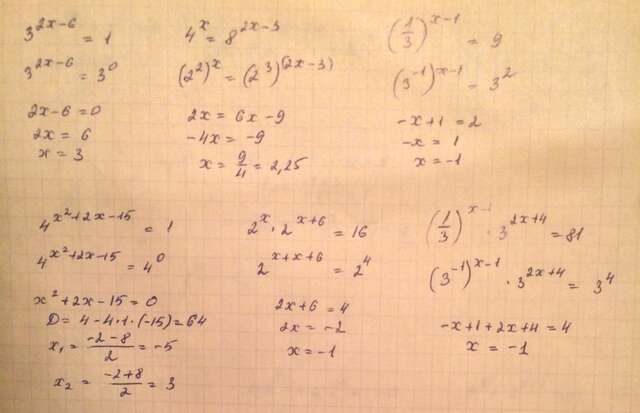 3^{2x-6} = 1
3^{2x-6} = 3^0
2x-6=0
2x = 6
x = 3
4^x = 8^{2x-3}
(2^2)^x = (2^3)^{(2x-3)}
2x = 6x-9
-4x = -9
x = 9/4 = 2,25
(1/3)^{x-1} = 9
(3^{-1})^{x-1} = 3^2
-x+1=2
-x = 1
x = -1
4^{x^2+2x-15} = 1
4^{x^2+2x-15} = 4^0
x^2+2x-15=0
D= 4-4·1·(-15)=64
x_1 = (-2-8)/2 = -5
x_2 = (-2+8)/2 = 3
2^x · 2^{x+6} = 16
2^{x+x+6} = 2^4
2x+6=4
2x = -2
x=-1
(1/3)^{x-1} · 3^{2x+4} = 81
(3^{-1})^{x-1} · 3^{2x+4} = 3^4
-x+1+2x+4=4
x = -1